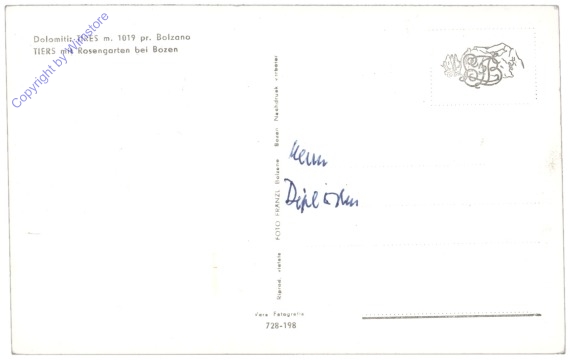 Dolomiti: TIRES m. 1019 pr. Bolzano
TIERS mit Rosengarten bei Bozen
Copyright by Wimstore
Riprod. vietata FOTO FRÄNZL Bolzano Bozen Nachdruck verboten
Herrn
Vera Fotografia
728-198